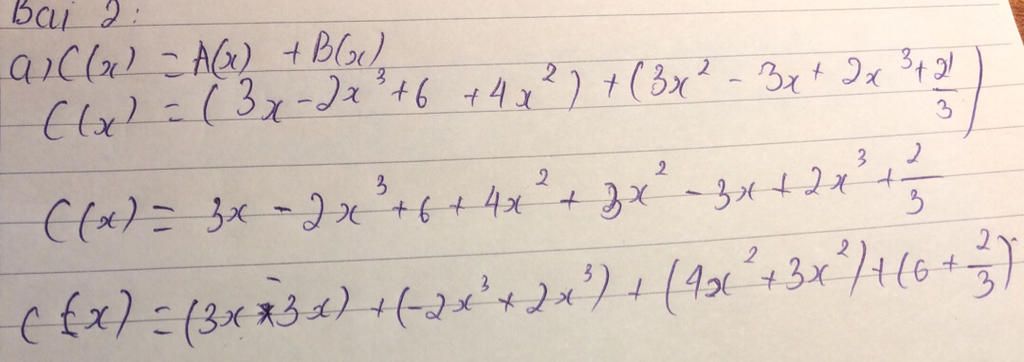 Bài 2:
a) C(x) = A(x) + B(x)
C(x) = (3x - 2x³ + 6 + 4x²) + (3x² - 3x + 2x³ + 2/3)
C(x) = 3x - 2x³ + 6 + 4x² + 3x² - 3x + 2x³ + 2/3
C(x) = (3x - 3x) + (-2x³ + 2x³) + (4x² + 3x²) + (6 + 2/3)